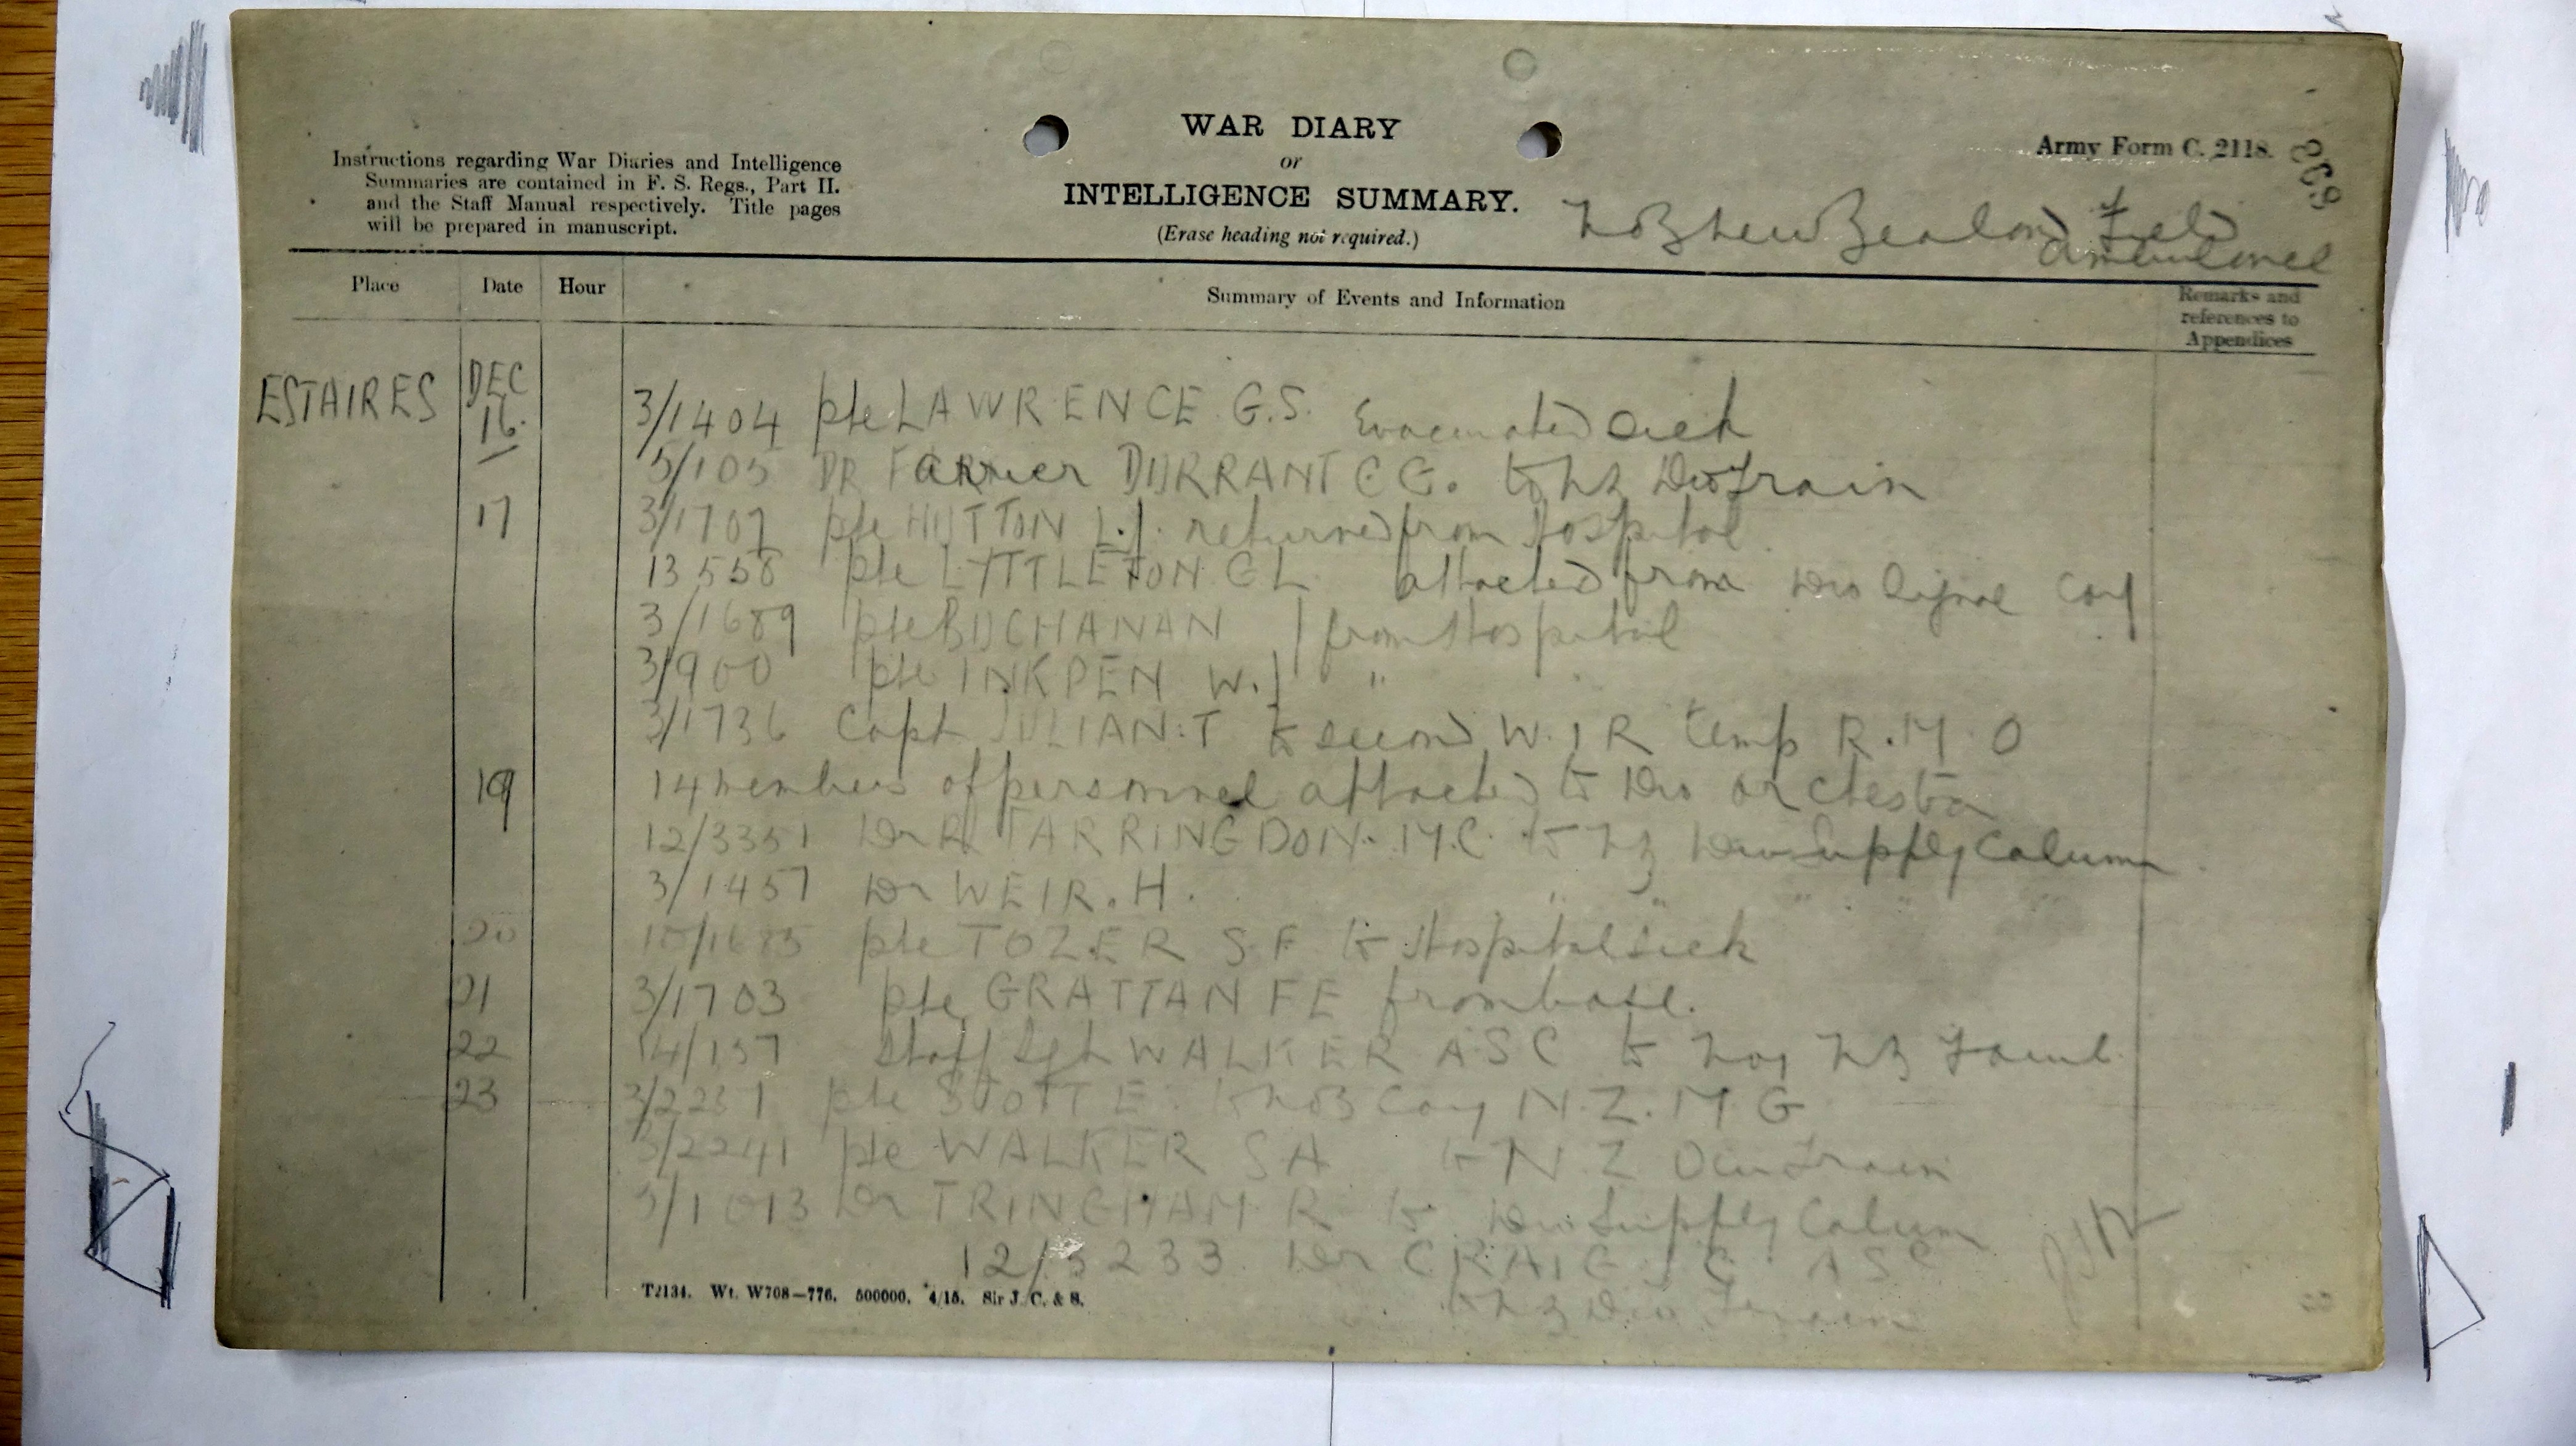 WAR DIARY
or
INTELLIGENCE SUMMARY.
(Erase heading not required.)
Instructions regarding War Diaries and Intelligence
Summaries are contained in F. S. Regs., Part II.
and the Staff Manual respectively. Title pages
will be prepared in manuscript.
Army Form C. 2118.
No 3 New Zealand Field
Ambulance
Place Date Hour Summary of Events and Information Remarks and
references to
Appendices
ESTAIRES DEC
16. 3/1404 pte LAWRENCE G.S. Evacuated sick
5/105 DR Farrier DURRANT C G. to NZ Div Train
17 3/1707 pte HUTTON L.J. returned from Hospital
13558 pte LYTTLETON G L attached from Div Signal Coy
3/1689 pte BUCHANAN from Hospital
3/900 pte INKPEN W. "
3/1736 Capt JULIAN. T to second W. I R temp R. M. O
19 14 members of personnel attached to Div orchestra
12/3351 Dr FARRINGDON. M.C. to NZ Div Supply Column
3/1457 Dr WEIR. H. " " " " "
20 pte TOZER S F to Hospital sick
21 3/1703 pte GRATTAN F E from base.
22 14/157 Staff Sgt WALKER ASC to No1 NZ F amb
23 3/2231 pte STOTT E. to No3 Coy N.Z. M G
3/2241 pte WALKER S A to N Z Div Train
5/1013 Dr TRINGHAM R to Div Supply Column
12/3233 Dr CRAIG J C ASC
to NZ Div Train
T2134. Wt. W708—776. 500000. 4/15. Sir J. C. & S.